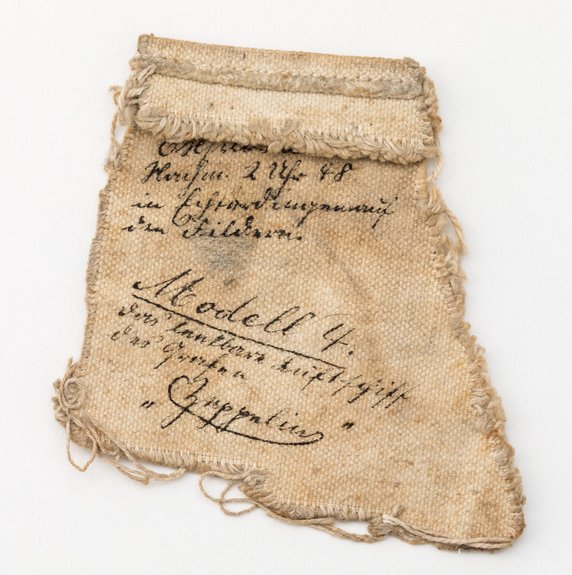 Nachm. 2 Uhr 48
in Echterdingen auf
den Fildern.
Modell 4.
das lenkbare Luftschiff
des Grafen
„Zeppelin"